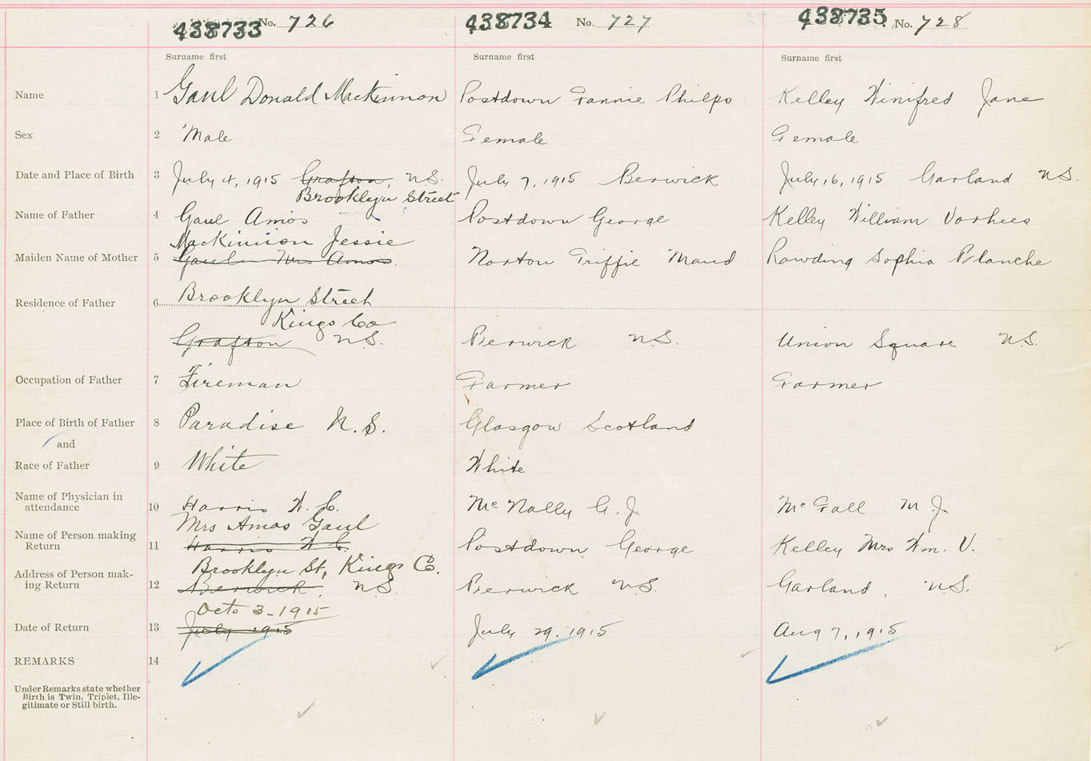 438733 No. 726 438734 No. 727 438735 No. 728
Surname first Surname first Surname first
Name 1 Gaul Donald MacKinnon Postdown Fannie Philpo Kelley Winifred Jane
Sex 2 Male Female Female
Date and Place of Birth 3 July 4, 1915 Grafton, N.S. July 7, 1915 Berwick July 16, 1915 Garland N.S.
Brooklyn Street
Name of Father 4 Gaul Amos Postdown George Kelley William Vorhees
MacKinnion Jessie
Maiden Name of Mother 5 Gaul Mrs Amos Norton Triffie Maud Rawding Sophia Blanche
Brooklyn Street
Residence of Father 6
Kings Co
Grafton N.S. Berwick N.S. Union Square N.S.
Occupation of Father 7 Fireman Farmer Farmer
Place of Birth of Father 8 Paradise N.S. Glasgow Scotland
and
Race of Father 9 White White
Name of Physician in
attendance 10 Harris W. C. McNally G. J. McFall M J.
Mrs Amos Gaul
Name of Person making
Return 11 Harris W C Postdown George Kelley Mrs Wm. V.
Brooklyn St, Kings Co.
Address of Person mak-
ing Return 12 Berwick, N.S. Berwick N.S. Garland, N.S.
Octo 3-1915
Date of Return 13 July 1915 July 29, 1915 Aug 7, 1915
REMARKS 14
Under Remarks state whether
Birth is Twin, Triplet, Ille-
gitimate or Still birth.